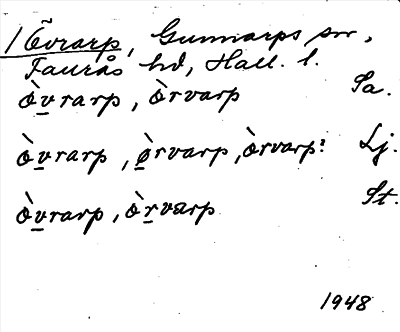 1 Övrarp, Gunnarps sn,
Faurås hd, Hall. l.
òvrarp, òrvarp Sa.
òvrarp, ørvarp, òrvarp: Lj.
òvrarp, òrvarp St.
1948